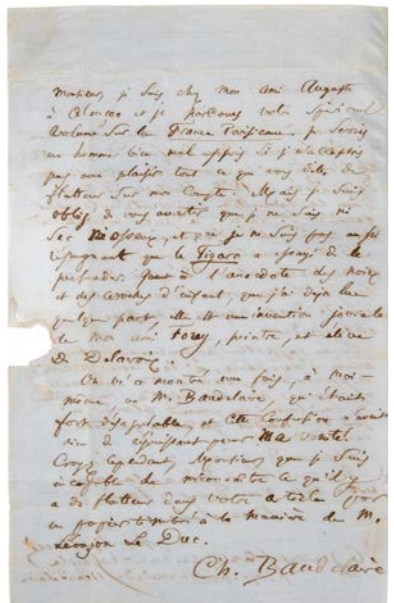 Monsieur, je suis chez mon ami Auguste
à Alençon et je parcours votre spirituel
volume sur la France Parisienne. je serais
un homme bien mal appris si je n'acceptais
pas avec plaisir tout ce que vous dites de
flatteur sur mon compte. Mais je suis
obligé de vous avertir que je ne suis ni
sec ni osseux, et que je ne suis pas aussi
répugnant que le Figaro a essayé de le
persuader. Quant à l'anecdote des noix
et des cervelles d'enfant, que j'ai déjà lue
quelque part, elle est une invention joviale
de mon ami Forey, peintre, et élève
de Delacroix.
On m'a montré une fois, à moi-
même un M. Baudelaire, qui était
fort désagréable, et cette confusion n'avait
rien de réjouissant pour ma vanité.
Croyez cependant, Monsieur, que je suis
incapable de méconnaître ce qu'il y
a de flatteur dans votre article
en papier timbré à la manière de M.
Léouzon Le Duc.
Ch. Baudelaire